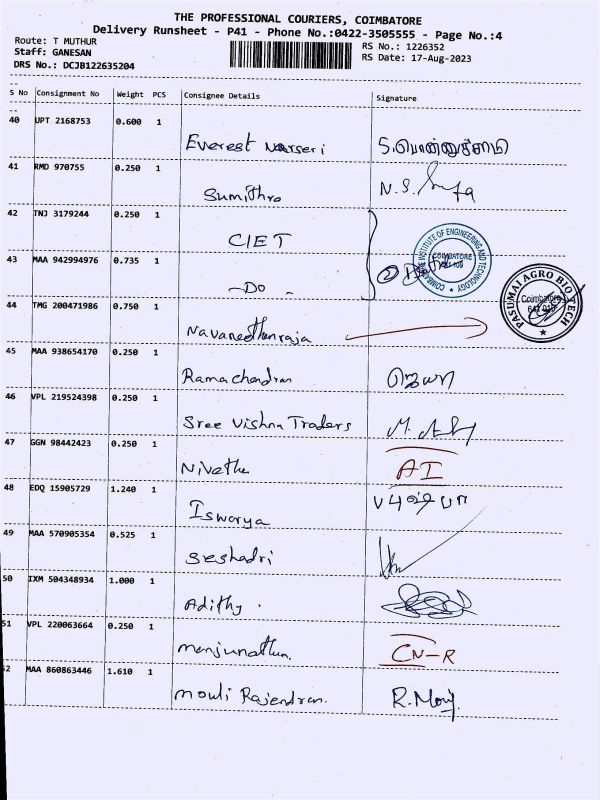 THE PROFESSIONAL COURIERS, COIMBATORE
Delivery Runsheet - P41 - Phone No.:0422-3505555 - Page No.:4
Route: T MUTHUR
Staff: GANESAN
DRS No.: DCJB122635204
RS No.: 1226352
RS Date: 17-Aug-2023
S No Consignment No Weight PCS Consignee Details Signature
40 UPT 2168753 0.600 1
Everest Narseri S.பொன்னுச்சாமி
41 RMD 970755 0.250 1
Sumithra N.S.
42 TNJ 3179244 0.250 1
CIET
COIMBATORE INSTITUTE OF ENGINEERING AND TECHNOLOGY
COIMBATORE
43 MAA 942994976 0.735 1
-Do-
PASUMAI AGRO BIO TECH
Coimbatore
44 TMG 200471986 0.750 1
Navaneethanraja
45 MAA 938654170 0.250 1
Ramachandran ஜெயா
46 VPL 219524398 0.250 1
Sree Vishnu Traders
47 GGN 98442423 0.250 1
Nivetha AI
48 EDQ 15905729 1.240 1
Isworya
49 MAA 570905354 0.525 1
Seshadri
50 IXM 504348934 1.000 1
Adithy.
51 VPL 220063664 0.250 1
manjunathan. CN-R
52 MAA 860863446 1.610 1
mouli Rajendran. R.Mouj